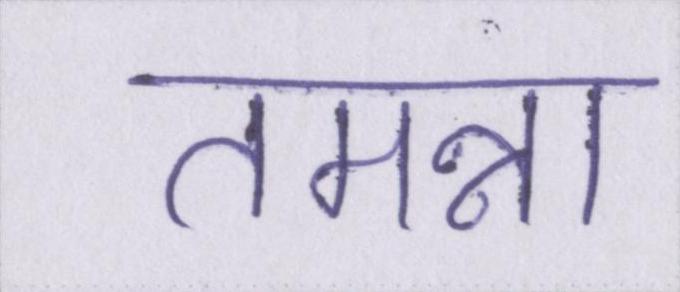 तमन्ना